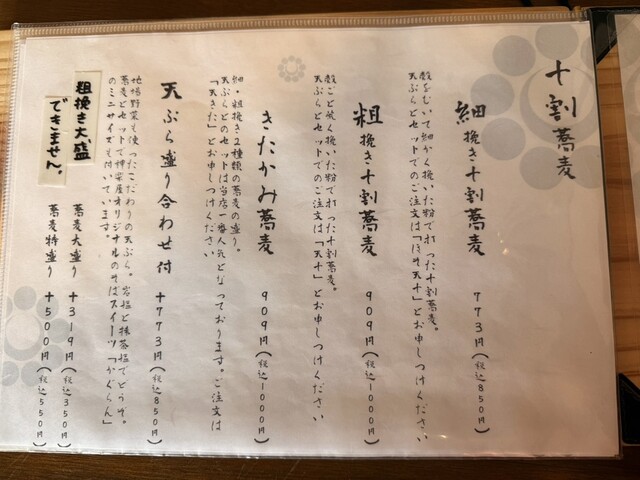 十割蕎麦
細挽き十割蕎麦 773円(税込850円)
殻をむいて細かく挽いた粉で打った十割蕎麦。
天ぷらとセットでのご注文は「ほそ天十」とお申しつけください
粗挽き十割蕎麦 909円(税込1000円)
殻ごと粗く挽いた粉で打った十割蕎麦。
天ぷらとセットでのご注文は「天十」とお申しつけください
きたかみ蕎麦 909円(税込1000円)
細・粗挽き2種類の蕎麦の盛り。
天ぷらとのセットは当店一番人気となっております。ご注文は
「天きた」とお申しつけください
天ぷら盛り合わせ付 +773円(税込850円)
地場野菜も使ったこだわりの天ぷら。岩塩と抹茶塩でどうぞ。
蕎麦とセットで神楽屋オリジナルのそばスイーツ「かぐくん」
のミニサイズも付いています。
蕎麦大盛り +319円(税込350円)
蕎麦特盛り +500円(税込550円)
粗挽き大盛
できません。